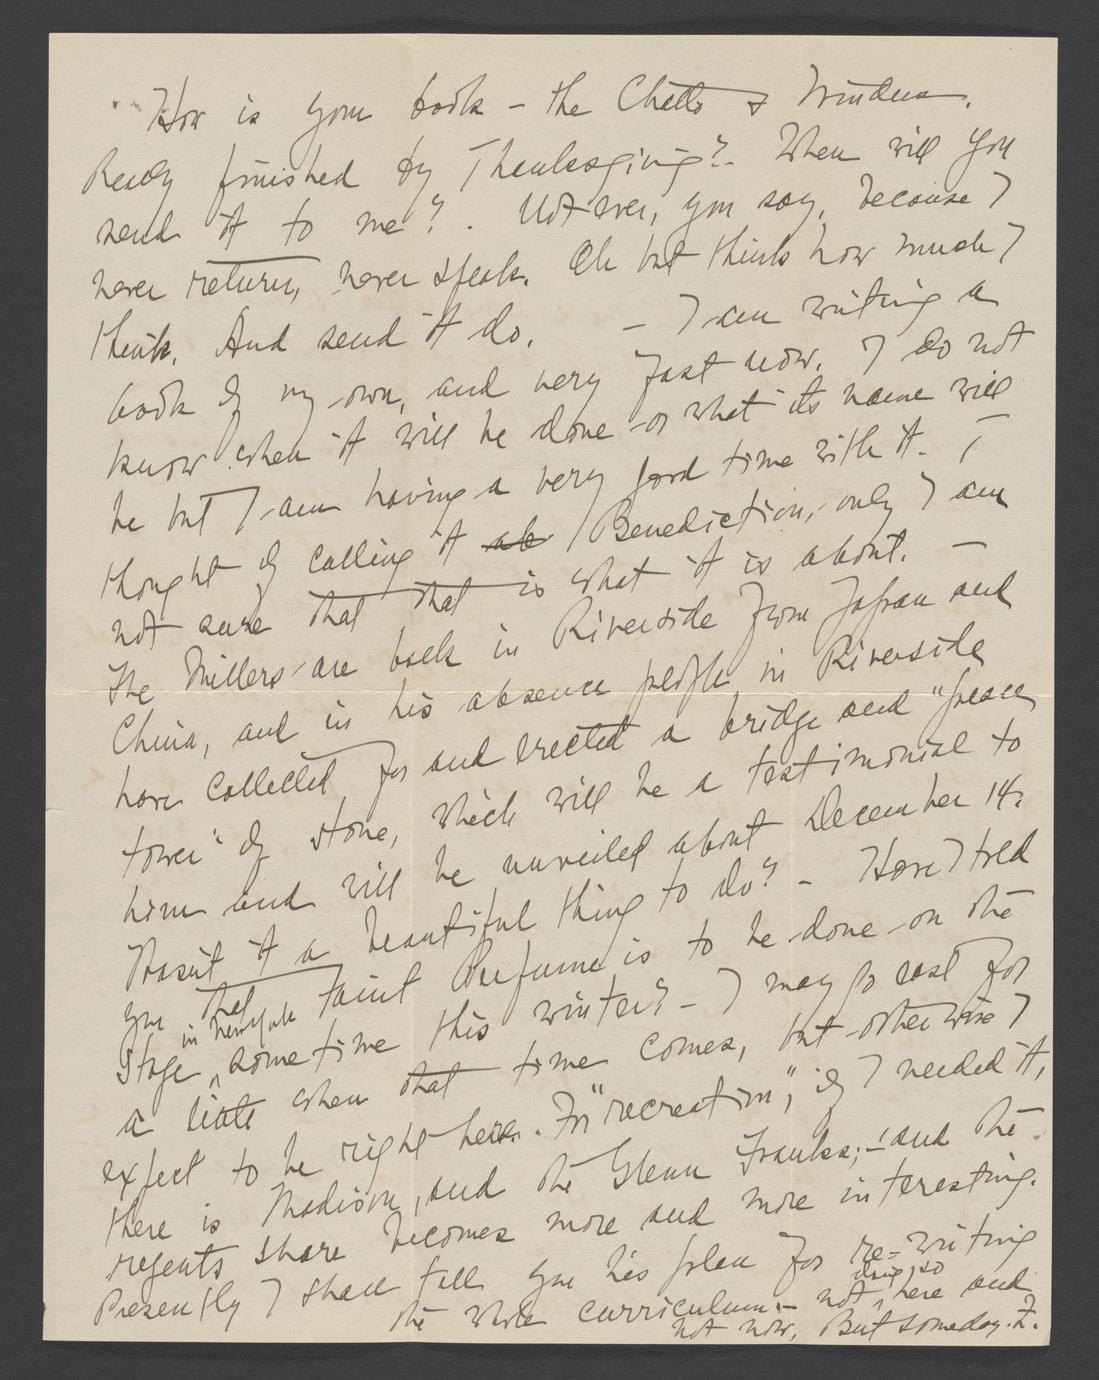 How is your book – the Ghetto & Windus.
Really finished by Thanksgiving? When will you
send it to me? . Not ever, you say, because I
never return, never speak. Oh but think how much I
think. And send it do. – I am writing a
book of my own, and very fast now. I do not
know when it will be done or what its name will
be but I am having a very good time with it. I
thought of calling it Benediction, only I am
not sure that that is what it is about. –
The Millers are back in Riverside from Japan and
China, and in his absence people in Riverside
have collected for and erected a bridge and "peace
tower" of stone, which will be a testimonial to
him and will be unveiled about December 14.
Wasn't it a beautiful thing to do? – Have I told
you that Faint Perfume is to be done on the
stage ^ in New York sometime this winter? – I may go east for
a little when that time comes, but otherwise I
expect to be right here. For "recreation", if I needed it,
there is Madison, and the Glenn Franks; – and the
regents share becomes more and more interesting.
Presently I shall tell you his plan for re-writing
the whole curriculum – not ^ doing so here and
not now. But someday. Z.